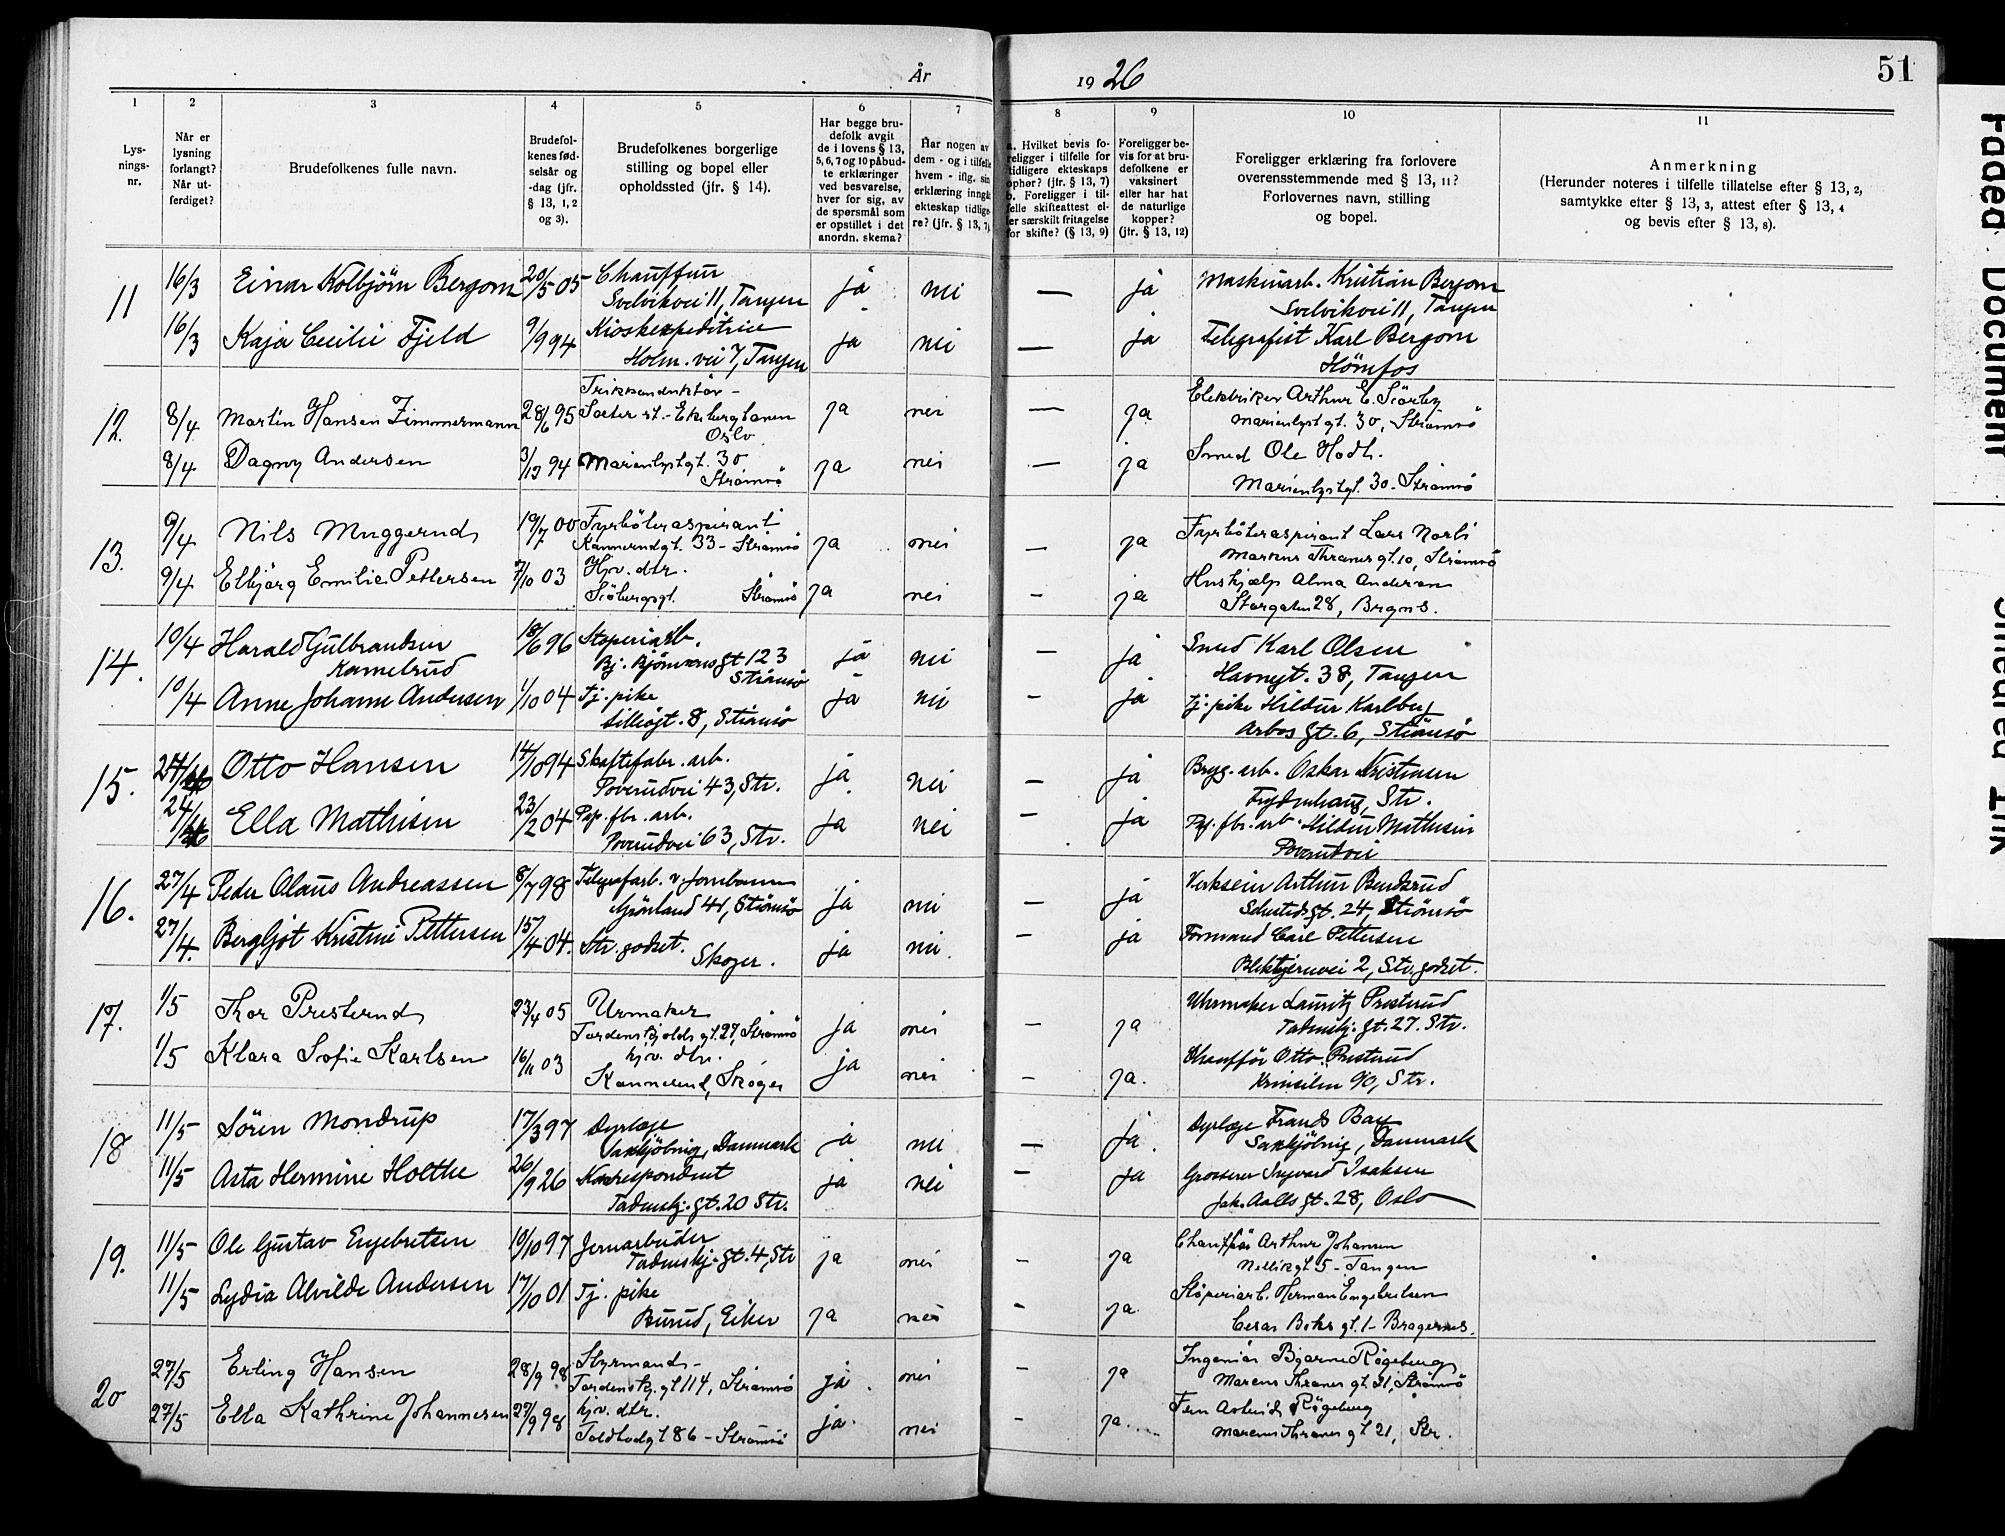 År 1926
51
1
2
3
4
5
6
7
8
9
10
11
Lys-
nings-
nr.
Når er
lysning
forlangt?
Når ut-
ferdiget?
Brudefolkenes fulle navn.
Brudefol-
kenes fød-
selsår og
-dag (jfr.
§ 13, 1, 2
og 3).
Brudefolkenes borgerlige
stilling og bopel eller
opholdssted (jfr. § 14).
Har begge bru-
defolk avgit
de i lovens § 13,
5, 6, 7 og 10 påbud-
te erklæringer
ved besvarelse,
hver for sig, av
de spørsmål som
er opstillet i det
anordn. skema?
Har nogen av
dem - og i tilfelle
hvem - iflg. sin
erklæring inngåt
ekteskap tidlige-
re? (jfr. § 13, 7)
a. Hvilket bevis fo-
religger i tilfelle for
tidligere ekteskaps
ophør? (jfr. § 13, 7)
b. Foreligger i til-
felle skifteattest el-
ler særskilt fritagelse
for skifte? (§ 13, 9)
Foreligger be-
vis for at bru-
defolkene er
vaksinert
eller har hat
de naturlige
kopper?
(jfr. § 13, 12)
Foreligger erklæring fra forlovere
overensstemmende med § 13, 11?
Forlovernes navn, stilling
og bopel.
Anmerkning
(Herunder noteres i tilfelle tillatelse efter § 13, 2,
samtykke efter § 13, 3, attest efter § 13, 4
og bevis efter § 13, 8).
11 16/3 Einar Kolbjörn Bergom 20/5 05 Chauffeur ja nei — ja Maskinarb. Kristian Bergom
Svelvikvei 11, Tangen Svelvikvei 11, Tangen
16/3 Kaja Cecilie Fjeld 9/9 94 Kioskexpeditrice ja nei — ja Telegrafist Karl Bergom
Holm. vei 7, Tangen Hönefos
12. 8/4 Martin Hansen Zimmermann 28/6 95 Trikkonduktör - ja nei — ja Elektriker Arthur E. Sörby
Sæter st. - Ekebergbanen Marienlystgt. 30, Strömsö
Oslo
8/4 Dagny Andersen 3/12 94 Marienlystgt. 30 ja nei — ja Smed Ole Hodt.
Strömsö Marienlystgt. 30. Strömsö
13. 9/4 Nils Muggerud 19/7 00 Fyrböteraspirant ja nei — ja Fyrböteraspirant Lars Norli
Konnerudgt. 33 - Strömsö Marcus Thranes gt. 10, Strömsö
9/4 Elbjörg Emilie Pettersen 7/10 03 Hjv. dtr. ja nei - ja Hushjælp Alma Andersen
Siöbergsgt. Strömsö Storgaten 28, Bragnes.
14. 10/4 Harald Gulbrandsen 18/6 96 Støperiarb. ja nei - ja Smed Karl Olsen
Kamelrud Bj. Bjørnsons gt 123 Havnegt. 38, Tangen
Strömsö
10/4 Anne Johanne Andersen 1/10 04 Tj. pike ja nei - ja Tj. pike Hildur Karlberg
Lilleøgt. 8, Strömsö Arbos gt. 6, Strömsö
15. 24/4 Otto Hansen 14/10 94 Skaftefabr. arb. ja nei - ja Bryg. arb. Oskar Kristiansen
Poverudvei 43, Str. Frydenhaug, Str.
24/4 Ella Mathisen 23/2 04 Pap. fbr. arb. ja nei - ja Pap. fbr. arb. Hildur Mathisen
Poverudvei 63, Str. Poverudvei
16. 27/4 Peder Olaus Andreassen 8/7 98 Telegrafarb. v. Jernbanen ja nei - ja Verkseier Arthur Bendsrud
Grönland 41, Strömsö Schustedsgt. 24, Strömsö
27/4. Bergljot Kristine Pettersen 15/4 04. Str. godset. ja nei. - ja Formand Carl Pettersen
Skoger. Blektjernvei 2, Str. godset.
17. 1/5 Thor Presterud 23/4 05 Urmaker ja nei - ja Uhrmaker Lauritz Presterud
Tordenskjolds gt. 27, Strömsö Tordenskj. gt. 27. Str.
1/5 Klara Sofie Karlsen 16/11 03 hjv. dtr. ja nei - ja. Chauffør Otto Presterud
Konnerud, Skoger 90, Str.
18 11/5 Sören Mondrup 17/3 97 Dyrlæge ja nei - ja. Dyrlæge Frands Bay
Saxkjöbing, Danmark Saxkjöbing, Danmark
11/5 Asta Hermine Holthe 26/9 26 Korrespondent ja nei - ja Grosserer Ingvard Isaksen
Tordenskj. gt. 20 Str. Jak. Aalls gt. 28, Oslo
19. 11/5 Ole Gustav Engebretsen 10/10 97 Jernarbeider ja nei - ja Chauffør Arthur Johansen
Tordenskj. gt. 4, Str Nellikgt. 5 - Tangen
11/5 Lydia Alvilde Andersen 17/10 01 Tj. pike ja nei - ja. Stöperiarb. Herman Engebretsen
Burud, Eiker Cesar Boks gt. 1 - Bragernes.
20 27/5 Erling Hansen 28/9 98 Styrmand - ja. nei - ja Ingeniør Bjarne Rögeberg
Tordenskj. gt 114, Strömsö Marcus Thranes gt. 21, Strömsö
27/5 Ella Kathrine Johannesen 27/9 98 hjv. dtr. ja. nei - ja. Frøken Astrid Rögeberg
Toldbodgt 86 - Strömsö Marcus Thranes gt 21, Str.
Faded Document
Smeared Ink